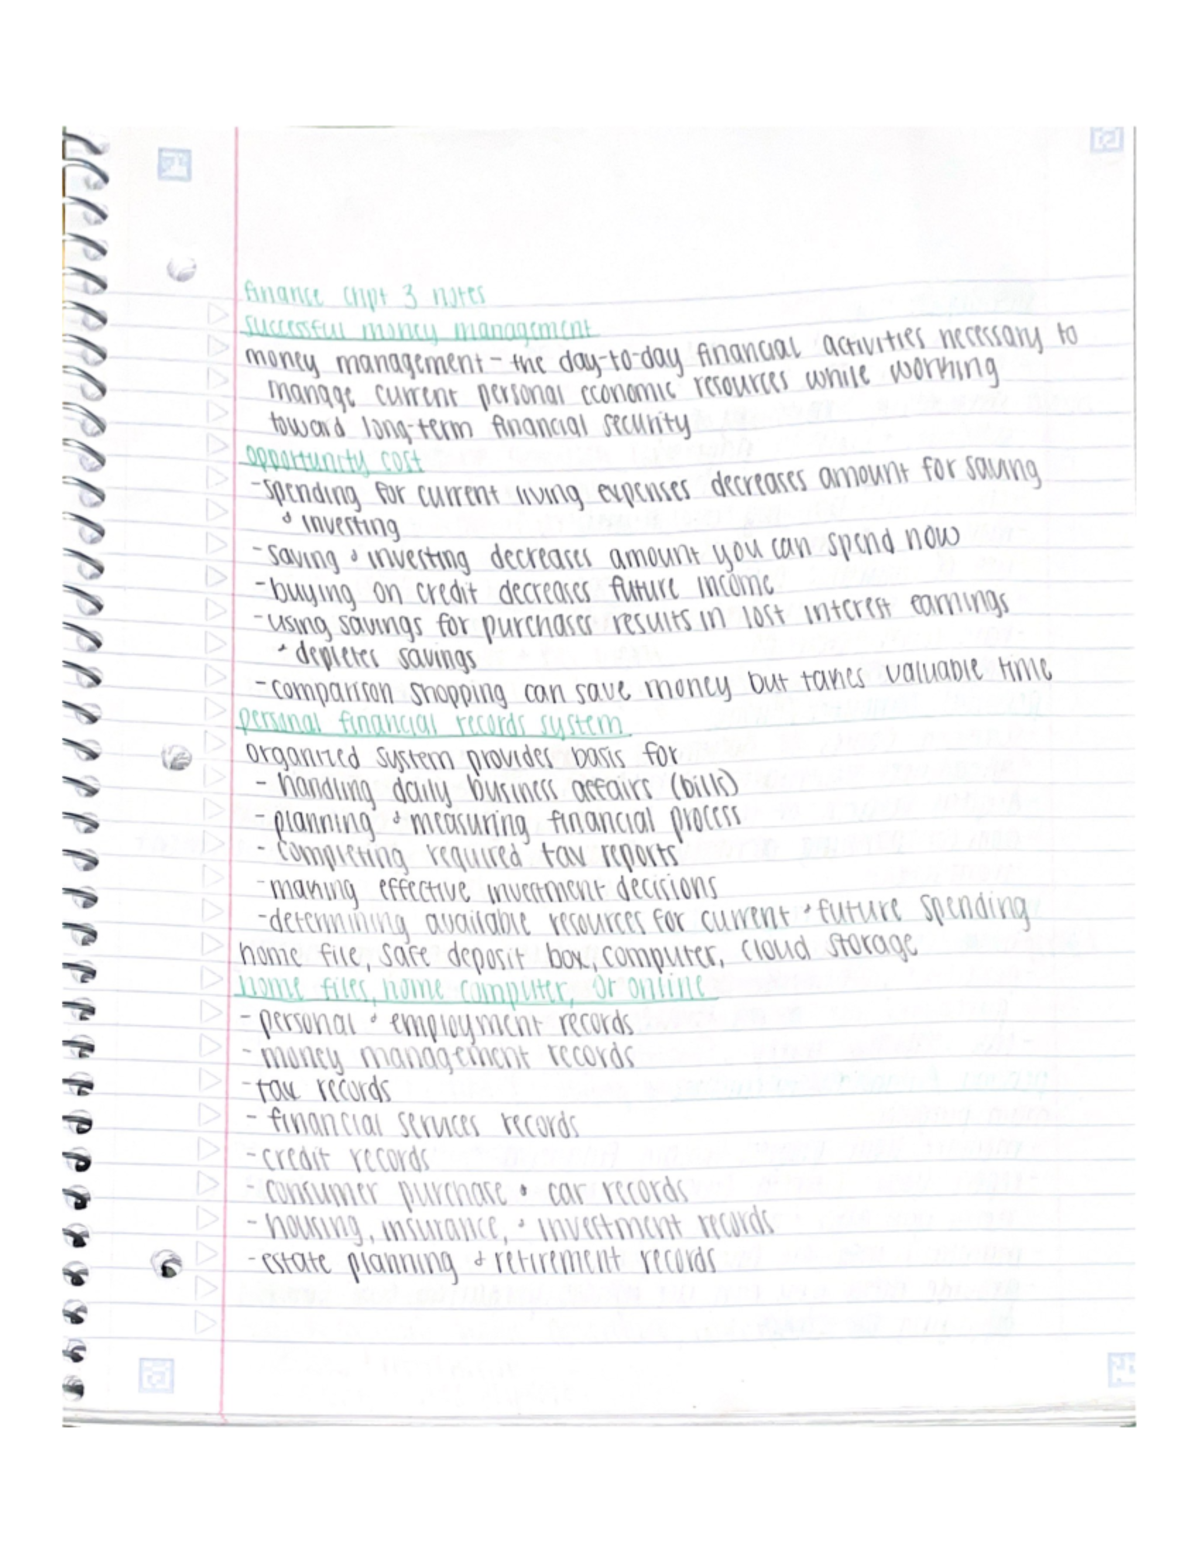 finance chpt 3 notes
successful money management
money management - the day-to-day financial activities necessary to
manage current personal economic resources while working
toward long-term financial security
opportunity cost
- spending for current living expenses decreases amount for saving
& investing
- saving & investing decreases amount you can spend now
- buying on credit decreases future income
- using savings for purchases results in lost interest earnings
& depletes savings
- comparison shopping can save money but takes valuable time
personal financial records system
organized system provides basis for
- handling daily business affairs (bills)
- planning & measuring financial process
- completing required tax reports
- making effective investment decisions
- determining available resources for current & future spending
home file, safe deposit box, computer, cloud storage
home files, home computer, or online
- personal & employment records
- money management records
- tax records
- financial services records
- credit records
- consumer purchase & car records
- housing, insurance, & investment records
- estate planning & retirement records